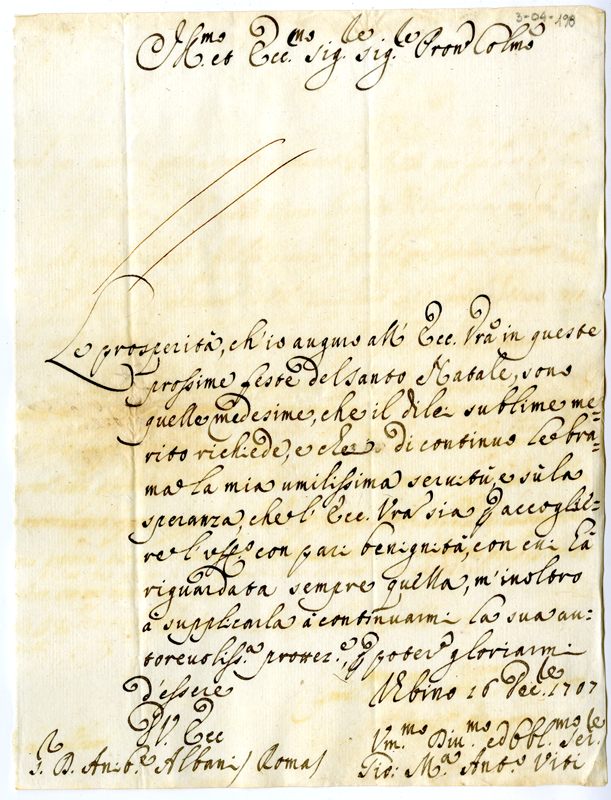 3-04-198
Ill.mo et Ecc.mo Sig.re Sig.re Pron Colmo
Le prosperità, ch'io auguro all' Ecc. Vra in queste
prossime feste del Santo Natale, sono
quelle medesime, che il di lei sublime me=
rito richiede, e che di continuo le bra=
ma la mia umilissima servitù, e sù la
speranza, che l' Ecc. Vra sia p accoglie=
re l' uff.o con pari benignità, con cui hà
riguardata sempre quella, m'inoltro
à supplicarla à continuarmi la sua au=
torevoliss.a protez.e, p poter gloriarmi
d'essere
Urbino 16 Dec.re 1707
D V. Ecc
Um.mo Diu.mo ed Obbl.mo Ser.re
S. D. Anib.e Albani / Roma /
Gio: M.a Ant.o Viti